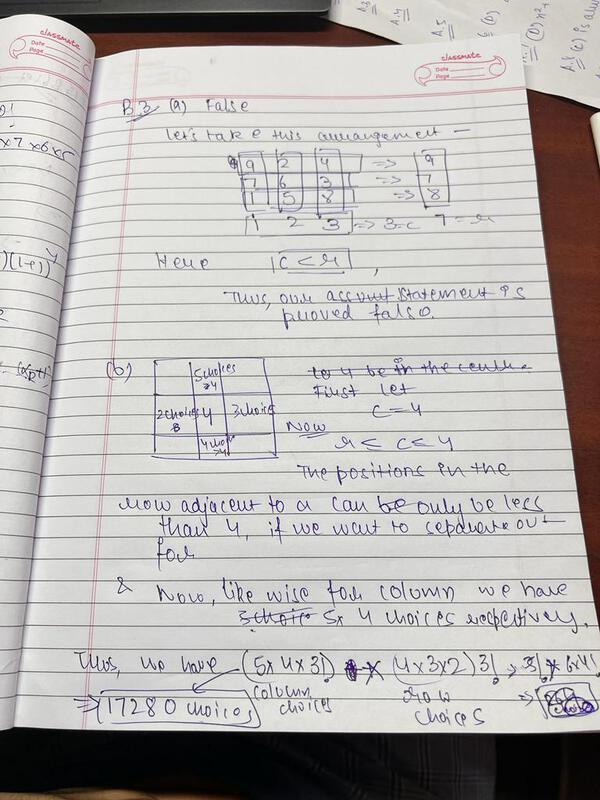 classmate
Date
Page
classmate
Date
Page
A.5
x7 x6x5
B3 (a) False
Let's take this arrangement -
9 2 4 => 9
7 6 3 => 7
1 5 8 => 8
1 2 3 => 3=c 7=r
Here c < r,
Thus, our statement is
proved false.
(b)
5 choices
>4
2 choices
4
3 choices
4 choi
>4
to 4 be in the centre
First let
c = 4
Now
r ≤ c ≤ 4
The positions in the
row adjacent to a can be only be less
than 4, if we want to separate out
for
& Now, like wise for column we have
3 choice 5x 4 choices respectively.
Thus, we have (5x4x3!) x (4x3x2)3!
=> 17280 choices
column
choices
row
choices